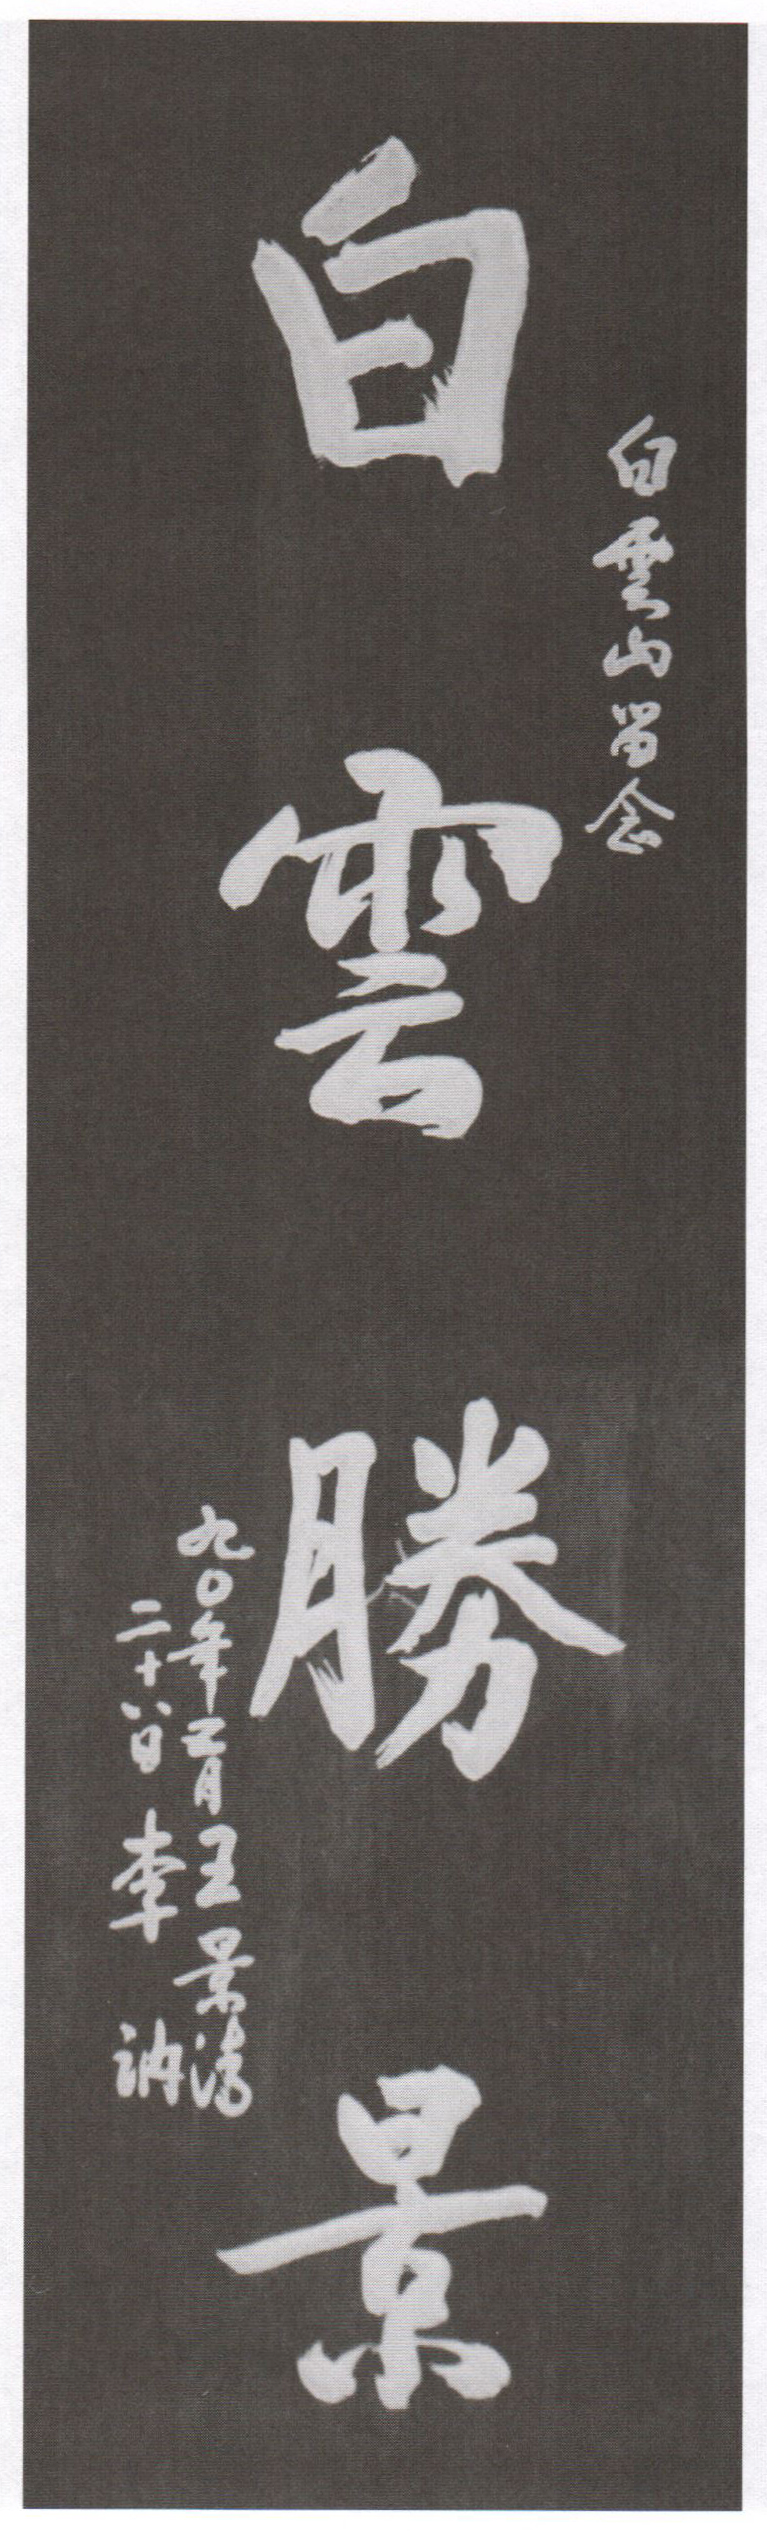 白雲山留念
白雲勝景
九〇年二月王景清
二十八日李訥